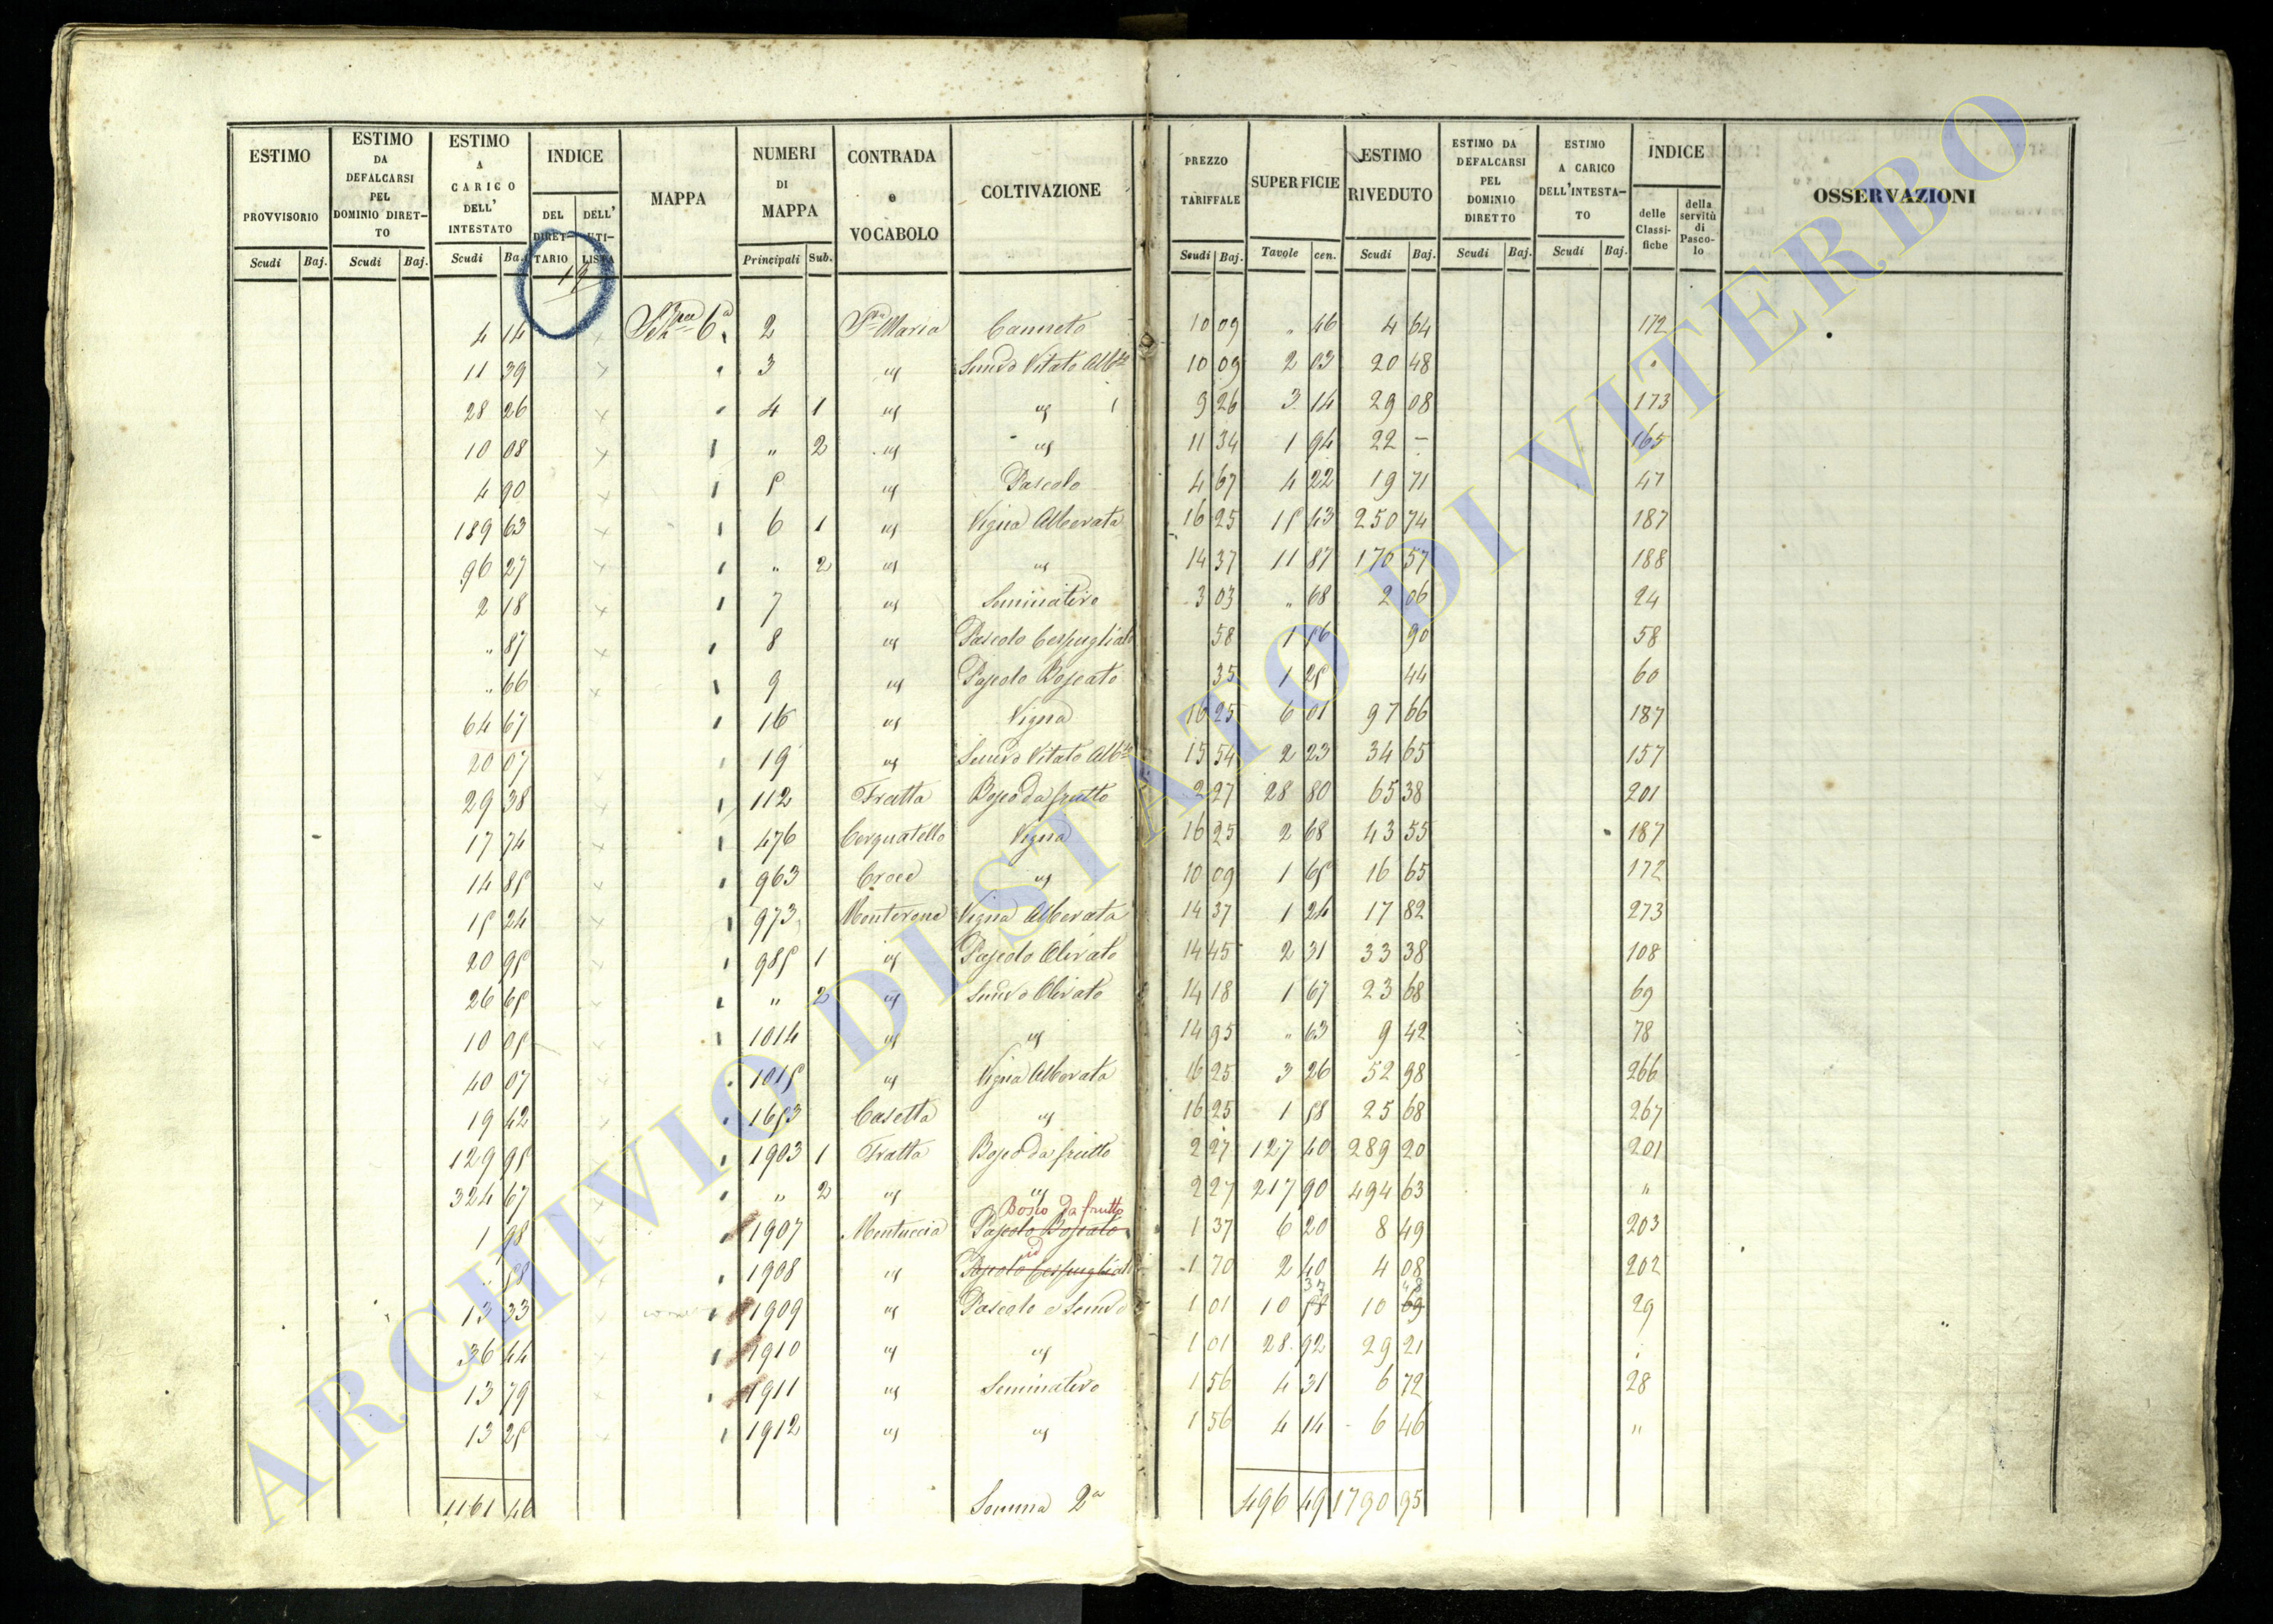 ESTIMO PROVVISORIO Scudi Baj.
ESTIMO DA DEFALCARSI PEL DOMINIO DIRETTO Scudi Baj.
ESTIMO A CARICO DELL' INTESTATO Scudi Ba
INDICE DEL DIRETTARIO DELL' UTILISTA
MAPPA
NUMERI DI MAPPA Principali Sub.
CONTRADA e VOCABOLO
COLTIVAZIONE
PREZZO TARIFFALE Scudi Baj.
SUPERFICIE Tavole cen.
ESTIMO RIVEDUTO Scudi Baj.
ESTIMO DA DEFALCARSI PEL DOMINIO DIRETTO Scudi Baj.
ESTIMO A CARICO DELL'INTESTATO Scudi Baj.
INDICE delle Classifiche della servitù di Pascolo
OSSERVAZIONI
19
4 14 x 6ª 2 Sta Maria Canneto 10 09 " 46 4 64 172
11 39 x 3 id Semvo Vitato Albto 10 09 2 03 20 48 "
28 26 x 4 1 id id 9 26 3 14 29 08 173
10 08 x " 2 id id 11 34 1 94 22 – 165
4 90 x 5 id Pascolo 4 67 4 22 19 71 47
189 63 x 6 1 id Vigna Alberata 16 25 15 43 250 74 187
96 27 x " 2 id id 14 37 11 87 170 57 188
2 18 x 7 id Seminativo 3 03 " 68 2 06 24
" 87 x 8 id Pascolo Cespugliato 58 1 56 90 58
" 66 x 9 id Pascolo Boscato 35 1 25 44 60
64 67 16 id Vigna 16 25 6 01 97 66 187
20 07 x 19 id Semvo Vitato Albto 15 54 2 23 34 65 157
29 38 x 112 Fratta Bosco da frutto 2 27 28 80 65 38 201
17 74 x 476 Cerquatello Vigna 16 25 2 68 43 55 187
14 85 x 963 Croce id 10 09 1 65 16 65 172
15 24 x 973 Monterone Vigna Alberata 14 37 1 24 17 82 273
20 95 x 985 1 id Pascolo Olivato 14 45 2 31 33 38 108
26 65 x " 2 id Semvo Olivato 14 18 1 67 23 68 69
10 05 x 1014 id id 14 95 " 63 9 42 78
40 07 x 1015 id Vigna Alberata 16 25 3 26 52 98 266
19 42 x 1653 Casetta id 16 25 1 58 25 68 267
129 95 x 1903 1 Fratta Bosco da frutto 2 27 127 40 289 20 201
324 67 x " 2 id id 2 27 217 90 494 63 "
Bosco da frutto
1 98 x 1907 Montuccia Pascolo Boscato 1 37 6 20 8 49 203
id
" 58 x 1908 id Pascolo Cespugliato 1 70 2 40 4 08 202
37 " 8
13 33 x 1909 id Pascolo e Semvo 1 01 10 58 10 69 29
36 44 x 1910 id id 1 01 28 92 29 21 "
13 79 x 1911 id Seminativo 1 56 4 31 6 72 28
13 25 1912 id id 1 56 4 14 6 46 "
1161 46 Somma 2ª 496 49 1790 95
ARCHIVIO DI STATO DI VITERBO